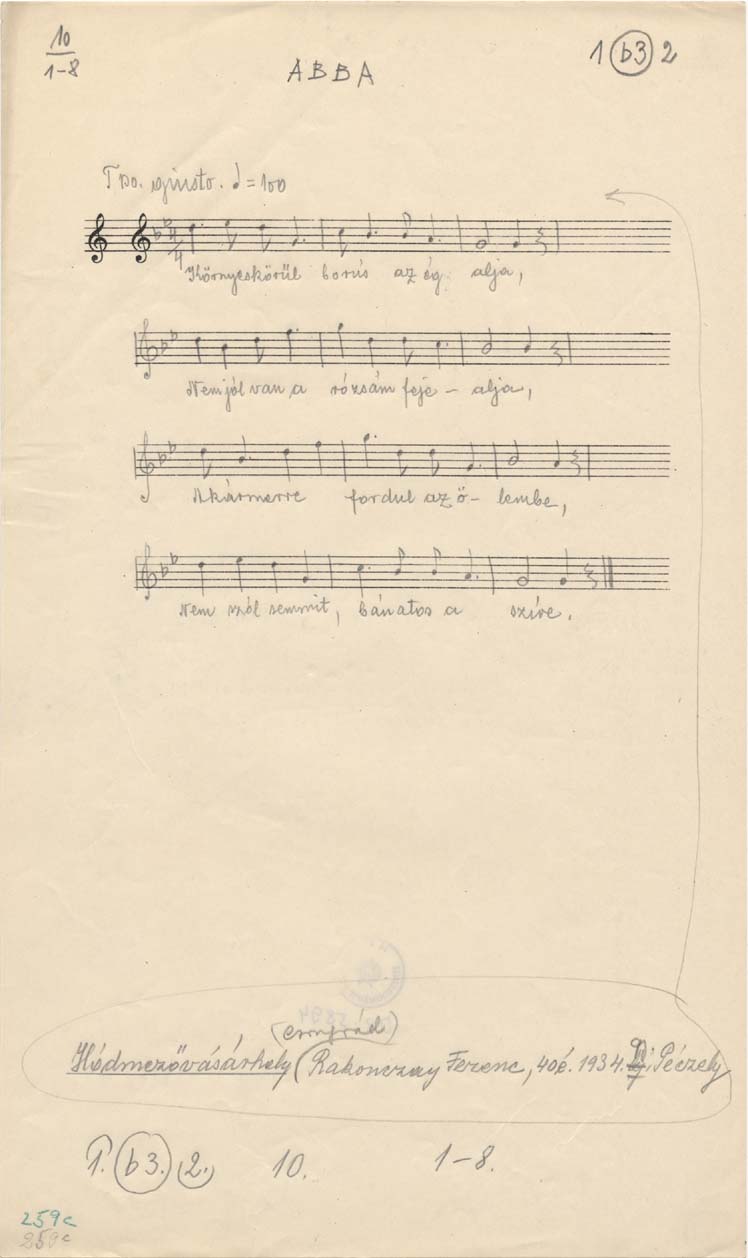 10
1-8
1 b3 2
ABBA
Tpo. giusto. = 100
4
4
Környeskörül borús az ég alja,
Nem jól van a rózsám feje - alja,
Akármerre fordul az ö - lembe,
Nem szól semmit, bánatos a szíve.
Hódmezővásárhely (Rakonczay Ferenc, 40é. 1934. Péczely
1. b3. 2. 10. 1-8.
259c
259c